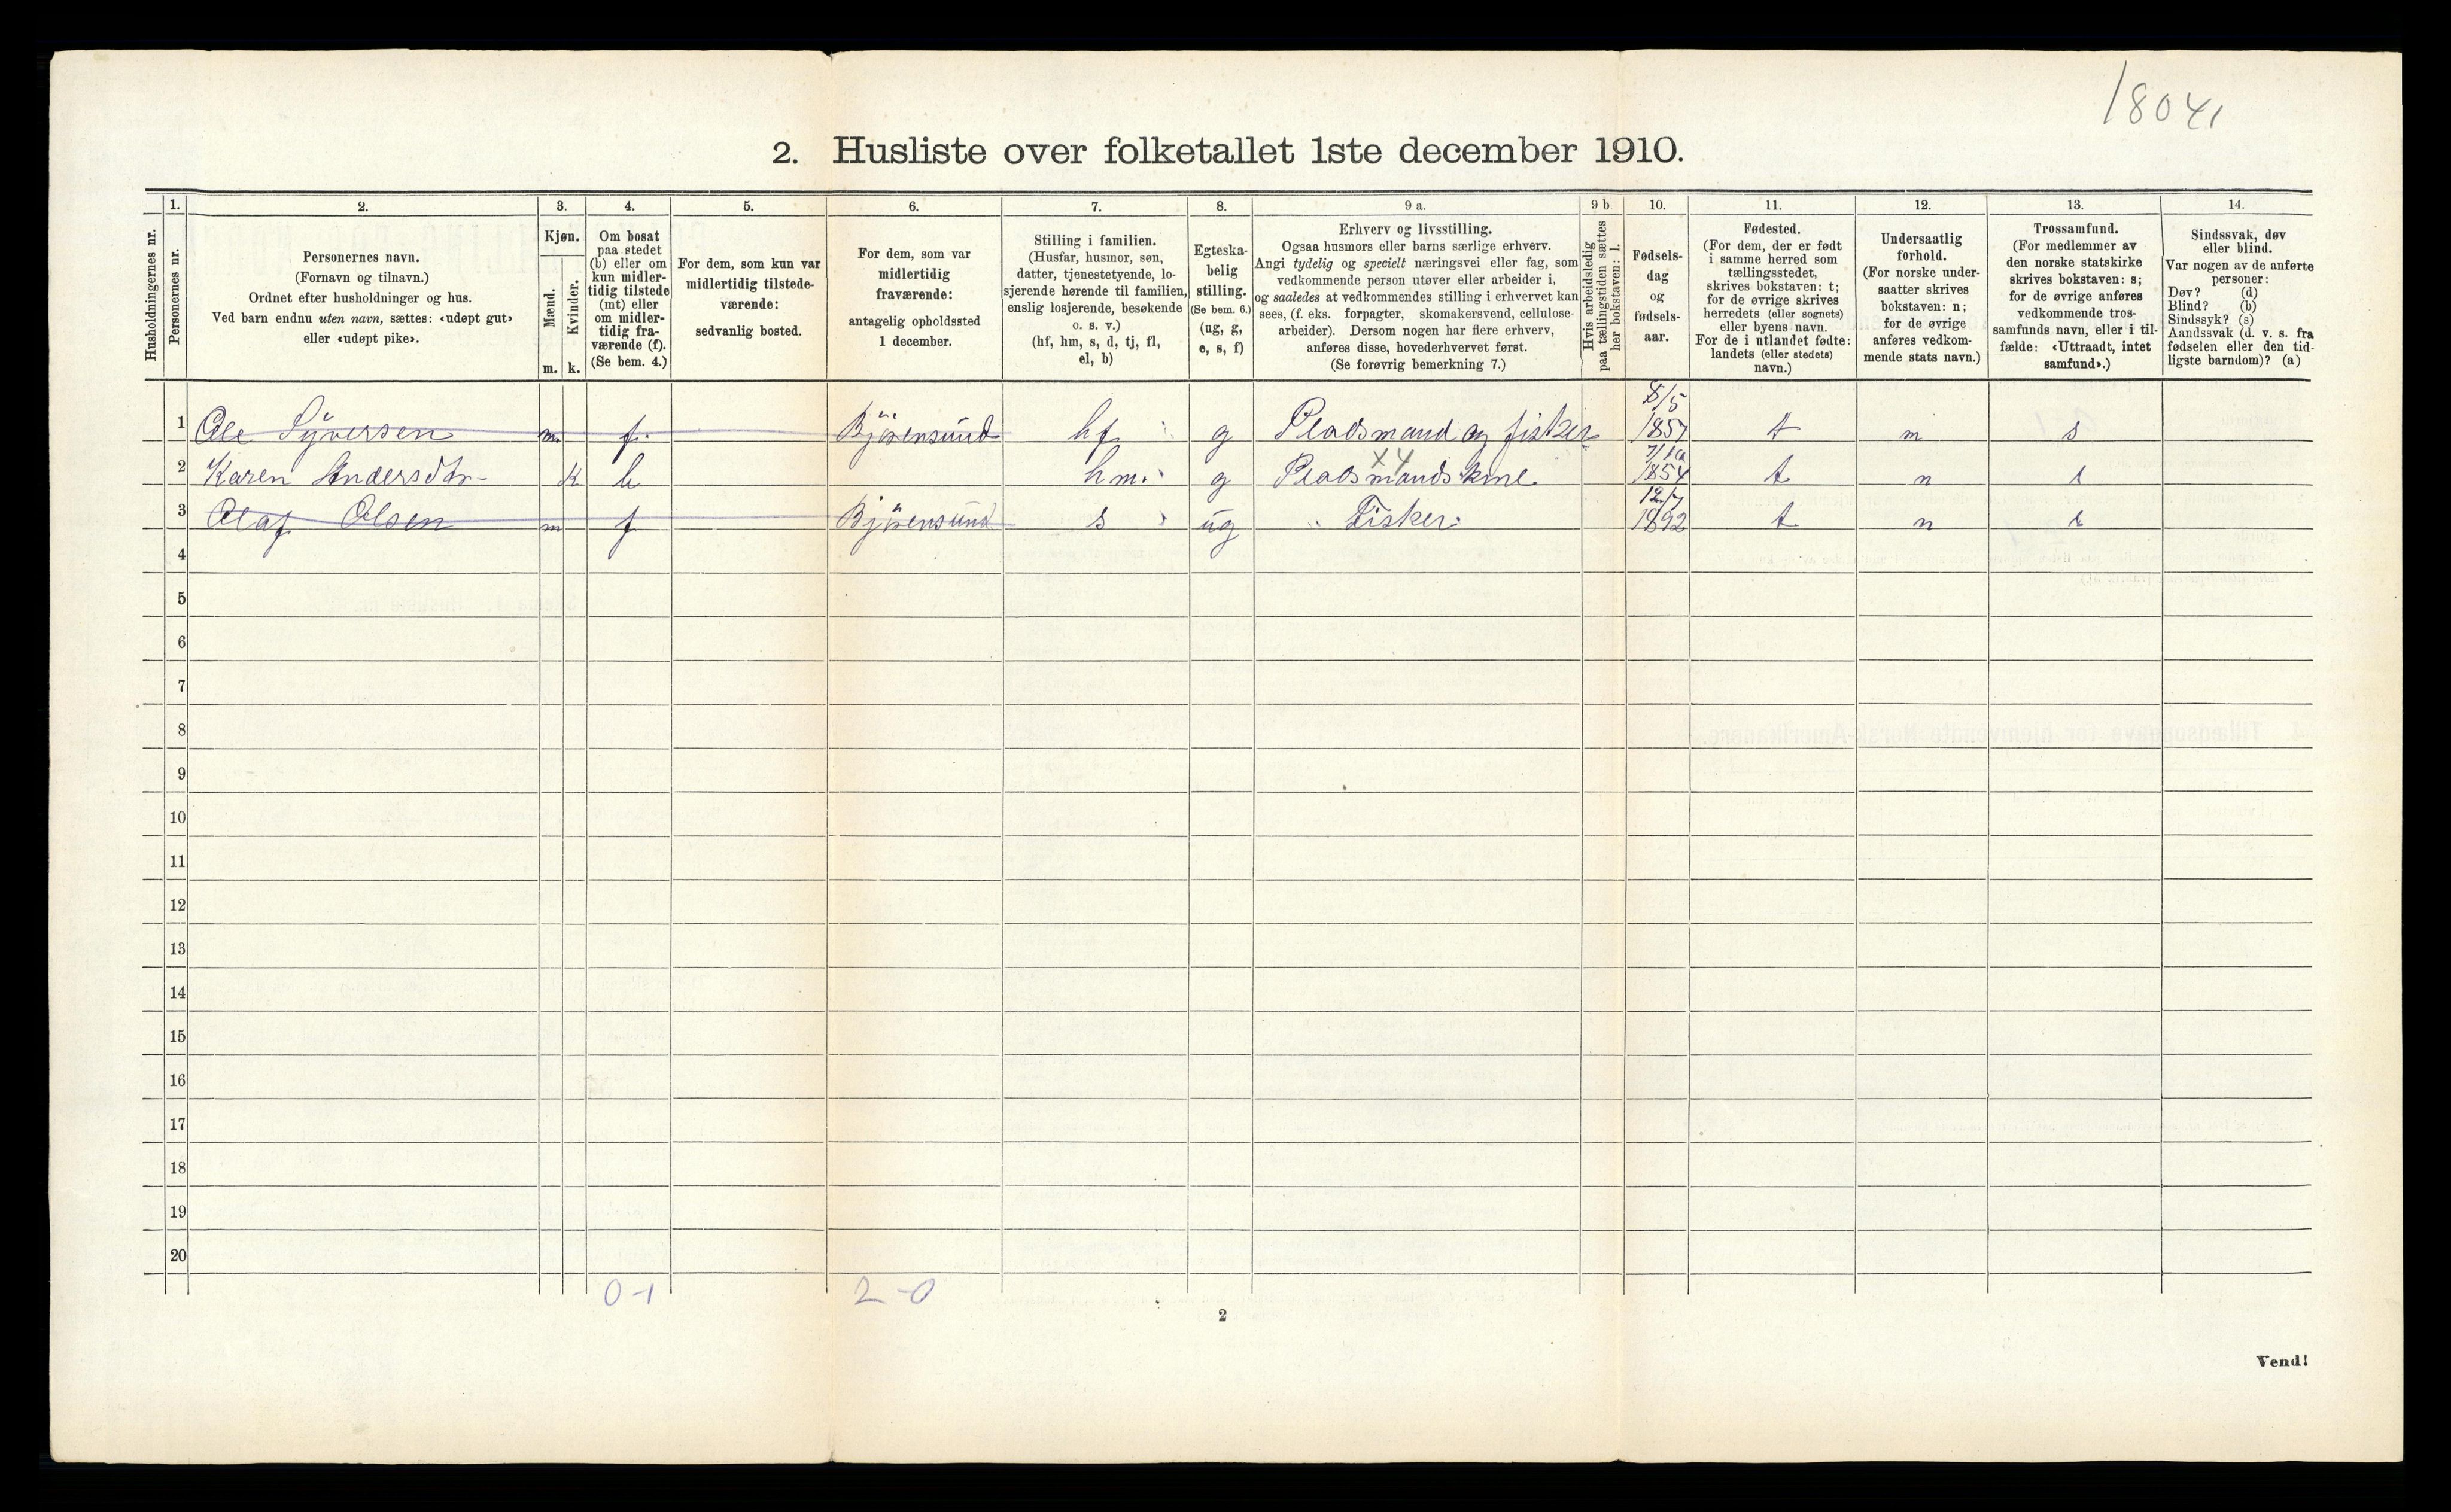 18041
2. Husliste over folketallet 1ste december 1910.
Husholdningernes nr.
1.
Personernes nr.
2.
Personernes navn.
(Fornavn og tilnavn.)
Ordnet efter husholdninger og hus.
Ved barn endnu uten navn, sættes: «udøpt gut»
eller «udøpt pike».
3.
Kjøn.
Mænd.
Kvinder.
m. k.
4.
Om bosat
paa stedet
(b) eller om
kun midler-
tidig tilstede
(mt) eller
om midler-
tidig fra-
værende (f).
(Se bem. 4.)
5.
For dem, som kun var
midlertidig tilstede-
værende:
sedvanlig bosted.
6.
For dem, som var
midlertidig
fraværende:
antagelig opholdssted
1 december.
7.
Stilling i familien.
(Husfar, husmor, søn,
datter, tjenestetyende, lo-
sjerende hørende til familien,
enslig losjerende, besøkende
o. s. v.)
(hf, hm, s, d, tj, fl,
el, b)
8.
Egteska-
belig
stilling.
(Se bem. 6.)
(ug, g,
e, s, f)
9 a.
Erhverv og livsstilling.
Ogsaa husmors eller barns særlige erhverv.
Angi tydelig og specielt næringsvei eller fag, som
vedkommende person utøver eller arbeider i,
og saaledes at vedkommendes stilling i erhvervet kan
sees, (f. eks. forpagter, skomakersvend, cellulose-
arbeider). Dersom nogen har flere erhverv,
anføres disse, hovederhvervet først.
(Se forøvrig bemerkning 7.)
9 b
Hvis arbeidsledig
paa tællingstiden sættes
her bokstaven: l.
10.
Fødsels-
dag
og
fødsels-
aar.
11.
Fødested.
(For dem, der er født
i samme herred som
tællingsstedet,
skrives bokstaven: t;
for de øvrige skrives
herredets (eller sognets)
eller byens navn.
For de i utlandet fødte:
landets (eller stedets)
navn.)
12.
Undersaatlig
forhold.
(For norske under-
saatter skrives
bokstaven: n;
for de øvrige
anføres vedkom-
mende stats navn.)
13.
Trossamfund.
(For medlemmer av
den norske statskirke
skrives bokstaven: s;
for de øvrige anføres
vedkommende tros-
samfunds navn, eller i til-
fælde: «Uttraadt, intet
samfund».)
14.
Sindssvak, døv
eller blind.
Var nogen av de anførte
personer:
Døv? (d)
Blind? (b)
Sindssyk? (s)
Aandssvak (d. v. s. fra
fødselen eller den tid-
ligste barndom)? (a)
1 Ole Syversen m. f. Bjørensund hf g Pladsmand og fisker 8/5 1857 t n s
2 Karen Andersdtr- k b hm. g Pladsmandskone X4 7/10 1854 t n s
3 Olaf Olsen m f Bjørensund s ug Fisker 12/7 1892 t n s
4
5
6
7
8
9
10
11
12
13
14
15
16
17
18
19
20
0-1 2-0
2
Vend!